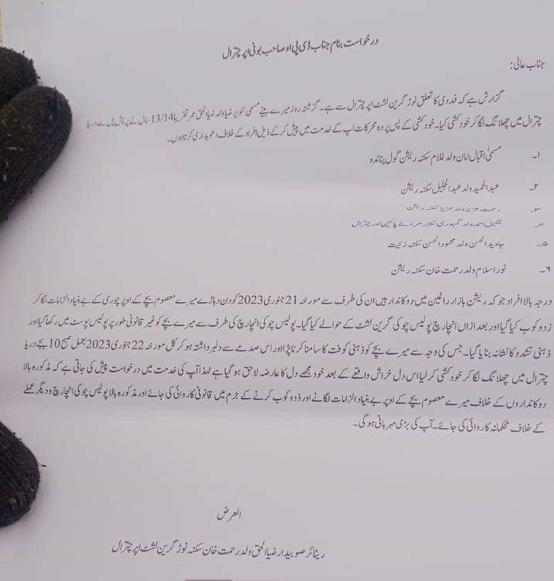 درخواست بنام جناب ڈی پی او صاحب بونی اپر چترال
جناب عالی:
گزارش ہے کہ فدوی کا تعلق نوڑ گرین لشٹ اپر چترال سے ہے۔ گزشتہ روز میرے بیٹے مسمی تنویر ضیاء ولد ضیاء الحق عمر تقریباً 13/14 سال نے پریشاں پل سے دریا
چترال میں چھلانگ لگا کر خودکشی کیا۔ خودکشی کے پس پردہ محرکات اپ کے خدمت میں پیش کر کے ذیل افراد کے خلاف دعویداری کرتا ہوں۔
۱۔ مسمیٰ اقبال امان ولد غلام سکنہ ریشن گول پناندہ
۲۔ عبدالحمید ولد عبدالجلیل سکنہ ریشن
۳۔ ولد عزیز سکنہ ریشن
۴۔ سکنہ اپر چترال
۵۔ جاوید الحسن ولد محمود الحسن سکنہ زئیت
۶۔ نور اسلام ولد رحمت خان سکنہ ریشن
درجہ بالا افراد جو کہ ریشن بازار راغین میں دوکاندار ہیں ان کی طرف سے مورخہ 21 جنوری 2023 کو دن دہاڑے میرے معصوم بچے کے اوپر چوری کے بے بنیاد الزامات لگا کر
زدوکوب کیا گیا اور بعد ازاں انچارچ پولیس چوکی گرین لشٹ کے حوالے کیا گیا۔ پولیس چوکی انچارچ کی طرف سے میرے بچے کو غیر قانونی طور پر پولیس پوسٹ میں رکھا گیا اور
ذہنی تشدد کا نشانہ بنایا گیا۔ جس کی وجہ سے میرے بچے کو ذہنی کوفت کا سامنا کرنا پڑا اور اس صدمے سے دلبرداشتہ ہو کر کل مورخہ 22 جنوری 2023 بجمل صبح 10 بجے دریا
چترال میں چھلانگ لگا کر خودکشی کر لیا اس دل خراش واقعے کے بعد خود مجھے دل کا عارضہ لاحق ہو گیا ہے لہذا آپ کی خدمت میں درخواست پیش کی جاتی ہے کہ مذکورہ بالا
دوکانداروں کے خلاف میرے معصوم بچے کے اوپر بے بنیاد الزامات لگانے اور زدوکوب کرنے کے جرم میں قانونی کاروائی کی جائے اور مذکورہ بالا پولیس چوکی انچارچ و دیگر عملے
کے خلاف محکمانہ کاروائی کی جائے۔ آپ کی بڑی مہربانی ہو گی۔
العرض
ریٹائر صوبیدار ضیاء الحق ولد رحمت خان سکنہ نوڑ گرین لشٹ اپر چترال